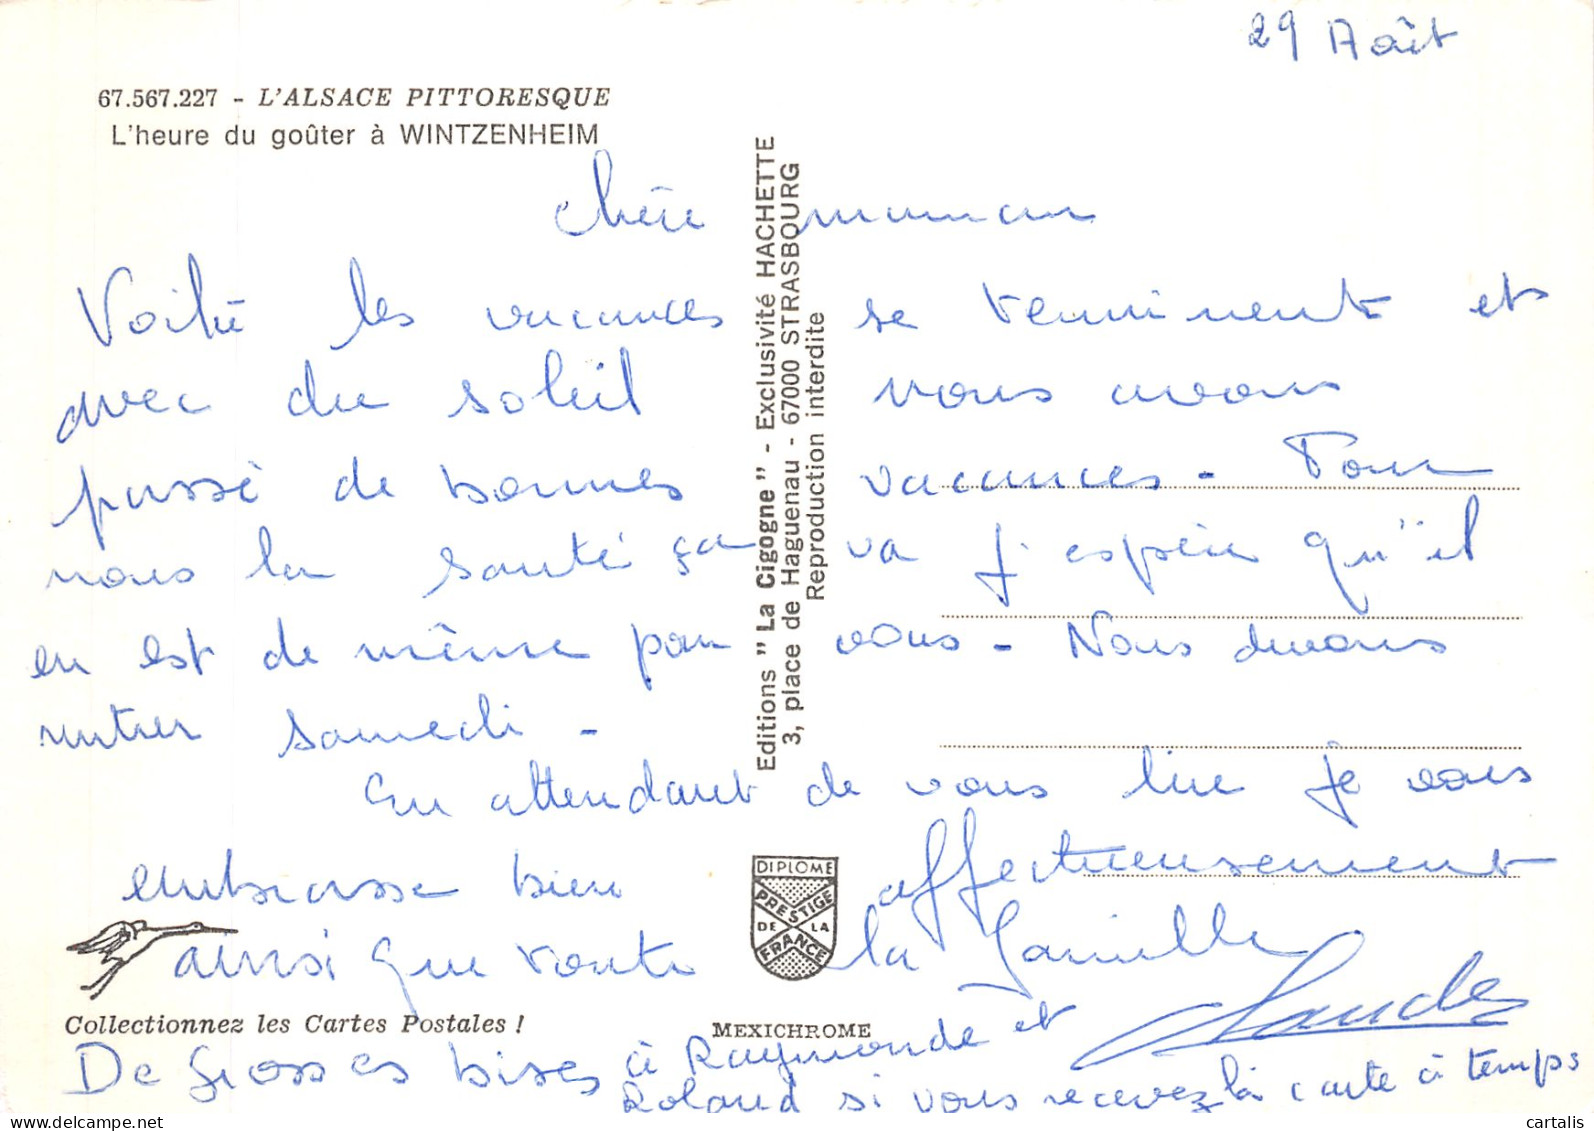 29 Août
67.567.227 - L'ALSACE PITTORESQUE
L'heure du goûter à WINTZENHEIM
Chère maman
Voilà les vacances se terminent et
avec du soleil nous avons
passé de bonnes vacances - Pour
nous la santé ça va j'espère qu'il
en est de même pour vous - Nous devons
rentrer samedi -
En attendant de vous lire je vous
embrasse bien affectueusement
ainsi que toute la famille
Claude
De grosses bises à Raymonde et
Roland si vous recevez la carte à temps
Editions "La Cigogne" - Exclusivité HACHETTE
3, place de Haguenau - 67000 STRASBOURG
Reproduction interdite
DIPLOME
PRESTIGE
DE LA
FRANCE
Collectionnez les Cartes Postales !
MEXICHROME
cartalis
delcampe.net